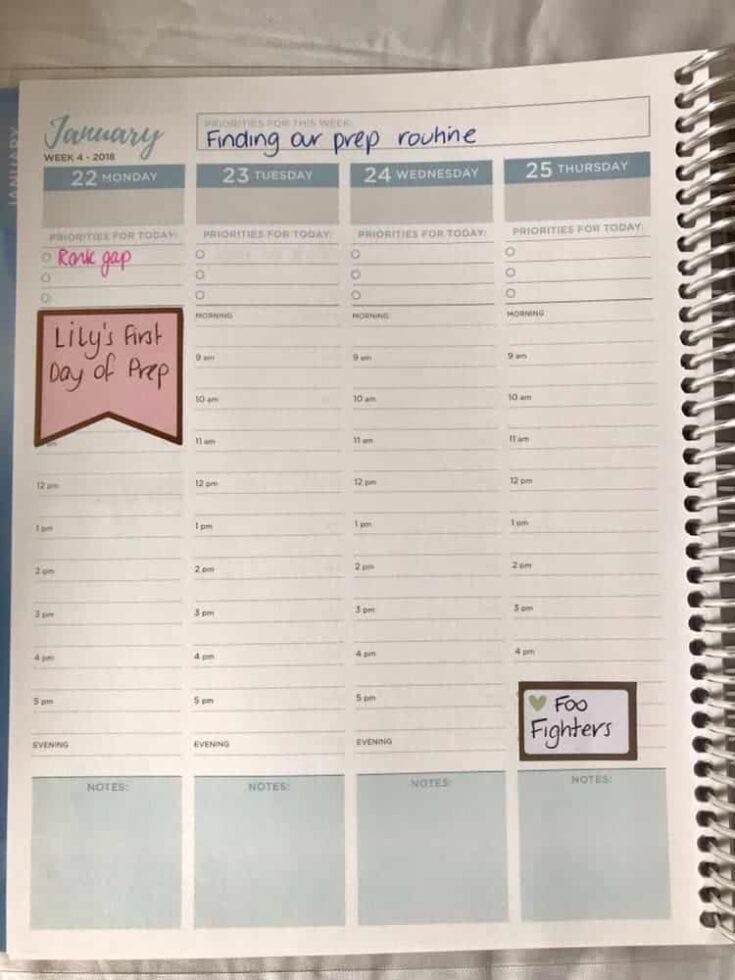 JANUARY
January
WEEK 4 - 2018
PRIORITIES FOR THIS WEEK:
Finding our prep routine
22 MONDAY
PRIORITIES FOR TODAY:
gap
Lily's First
Day of Prep
12 pm
1 pm
2 pm
3 pm
4 pm
5 pm
EVENING
NOTES:
23 TUESDAY
PRIORITIES FOR TODAY:
MORNING
9 am
10 am
11 am
12 pm
1 pm
2 pm
3 pm
4 pm
5 pm
EVENING
NOTES:
24 WEDNESDAY
PRIORITIES FOR TODAY:
MORNING
9 am
10 am
11 am
12 pm
1 pm
2 pm
3 pm
4 pm
5 pm
EVENING
NOTES:
25 THURSDAY
PRIORITIES FOR TODAY:
MORNING
9 am
10 am
11 am
12 pm
1 pm
2 pm
3 pm
4 pm
Foo
Fighters
NOTES: